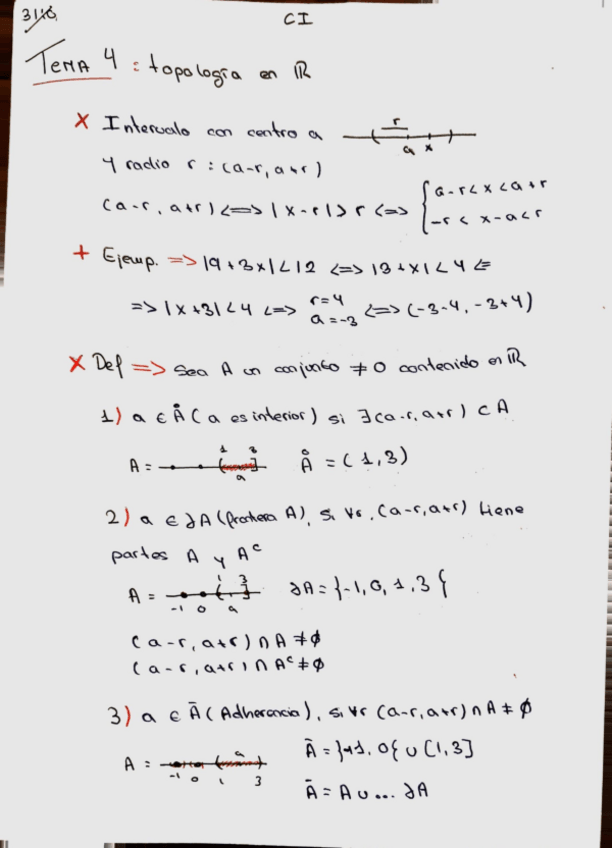 3/10
CI
TEMA 4 : topología en ℝ
x Intervalo con centro a
r
a x
y radio r : (a-r, a+r)
(a-r, a+r) <=> |x-r|>r <=> { a-r<x<a+r
-r < x-a<r
+ Ejemp. => |9+3x|<12 <=> |3+x|<4 <=
=> |x+3|<4 <=> r=4 a=-3 <=> (-3-4, -3+4)
x Def => Sea A un conjunto ≠0 contenido en ℝ
1) a ∈ Å (a es interior) si ∃(a-r, a+r) ⊂ A
1 3
A = Å = (1,3)
a
2) a ∈ ∂A (frontera A), si ∀r, (a-r, a+r) tiene
partes A y Aᶜ
1 3
A = ∂A = {-1, 0, 1, 3 {
-1 0 a
(a-r, a+r) ∩ A ≠ ∅
(a-r, a+r) ∩ Aᶜ ≠ ∅
3) a ∈ Ā (Adherencia), si ∀r (a-r, a+r) ∩ A ≠ ∅
a
A = Ā = }-1, 0{ ∪ [1,3]
-1 0 1 3
Ā = A ∪ ... ∂A